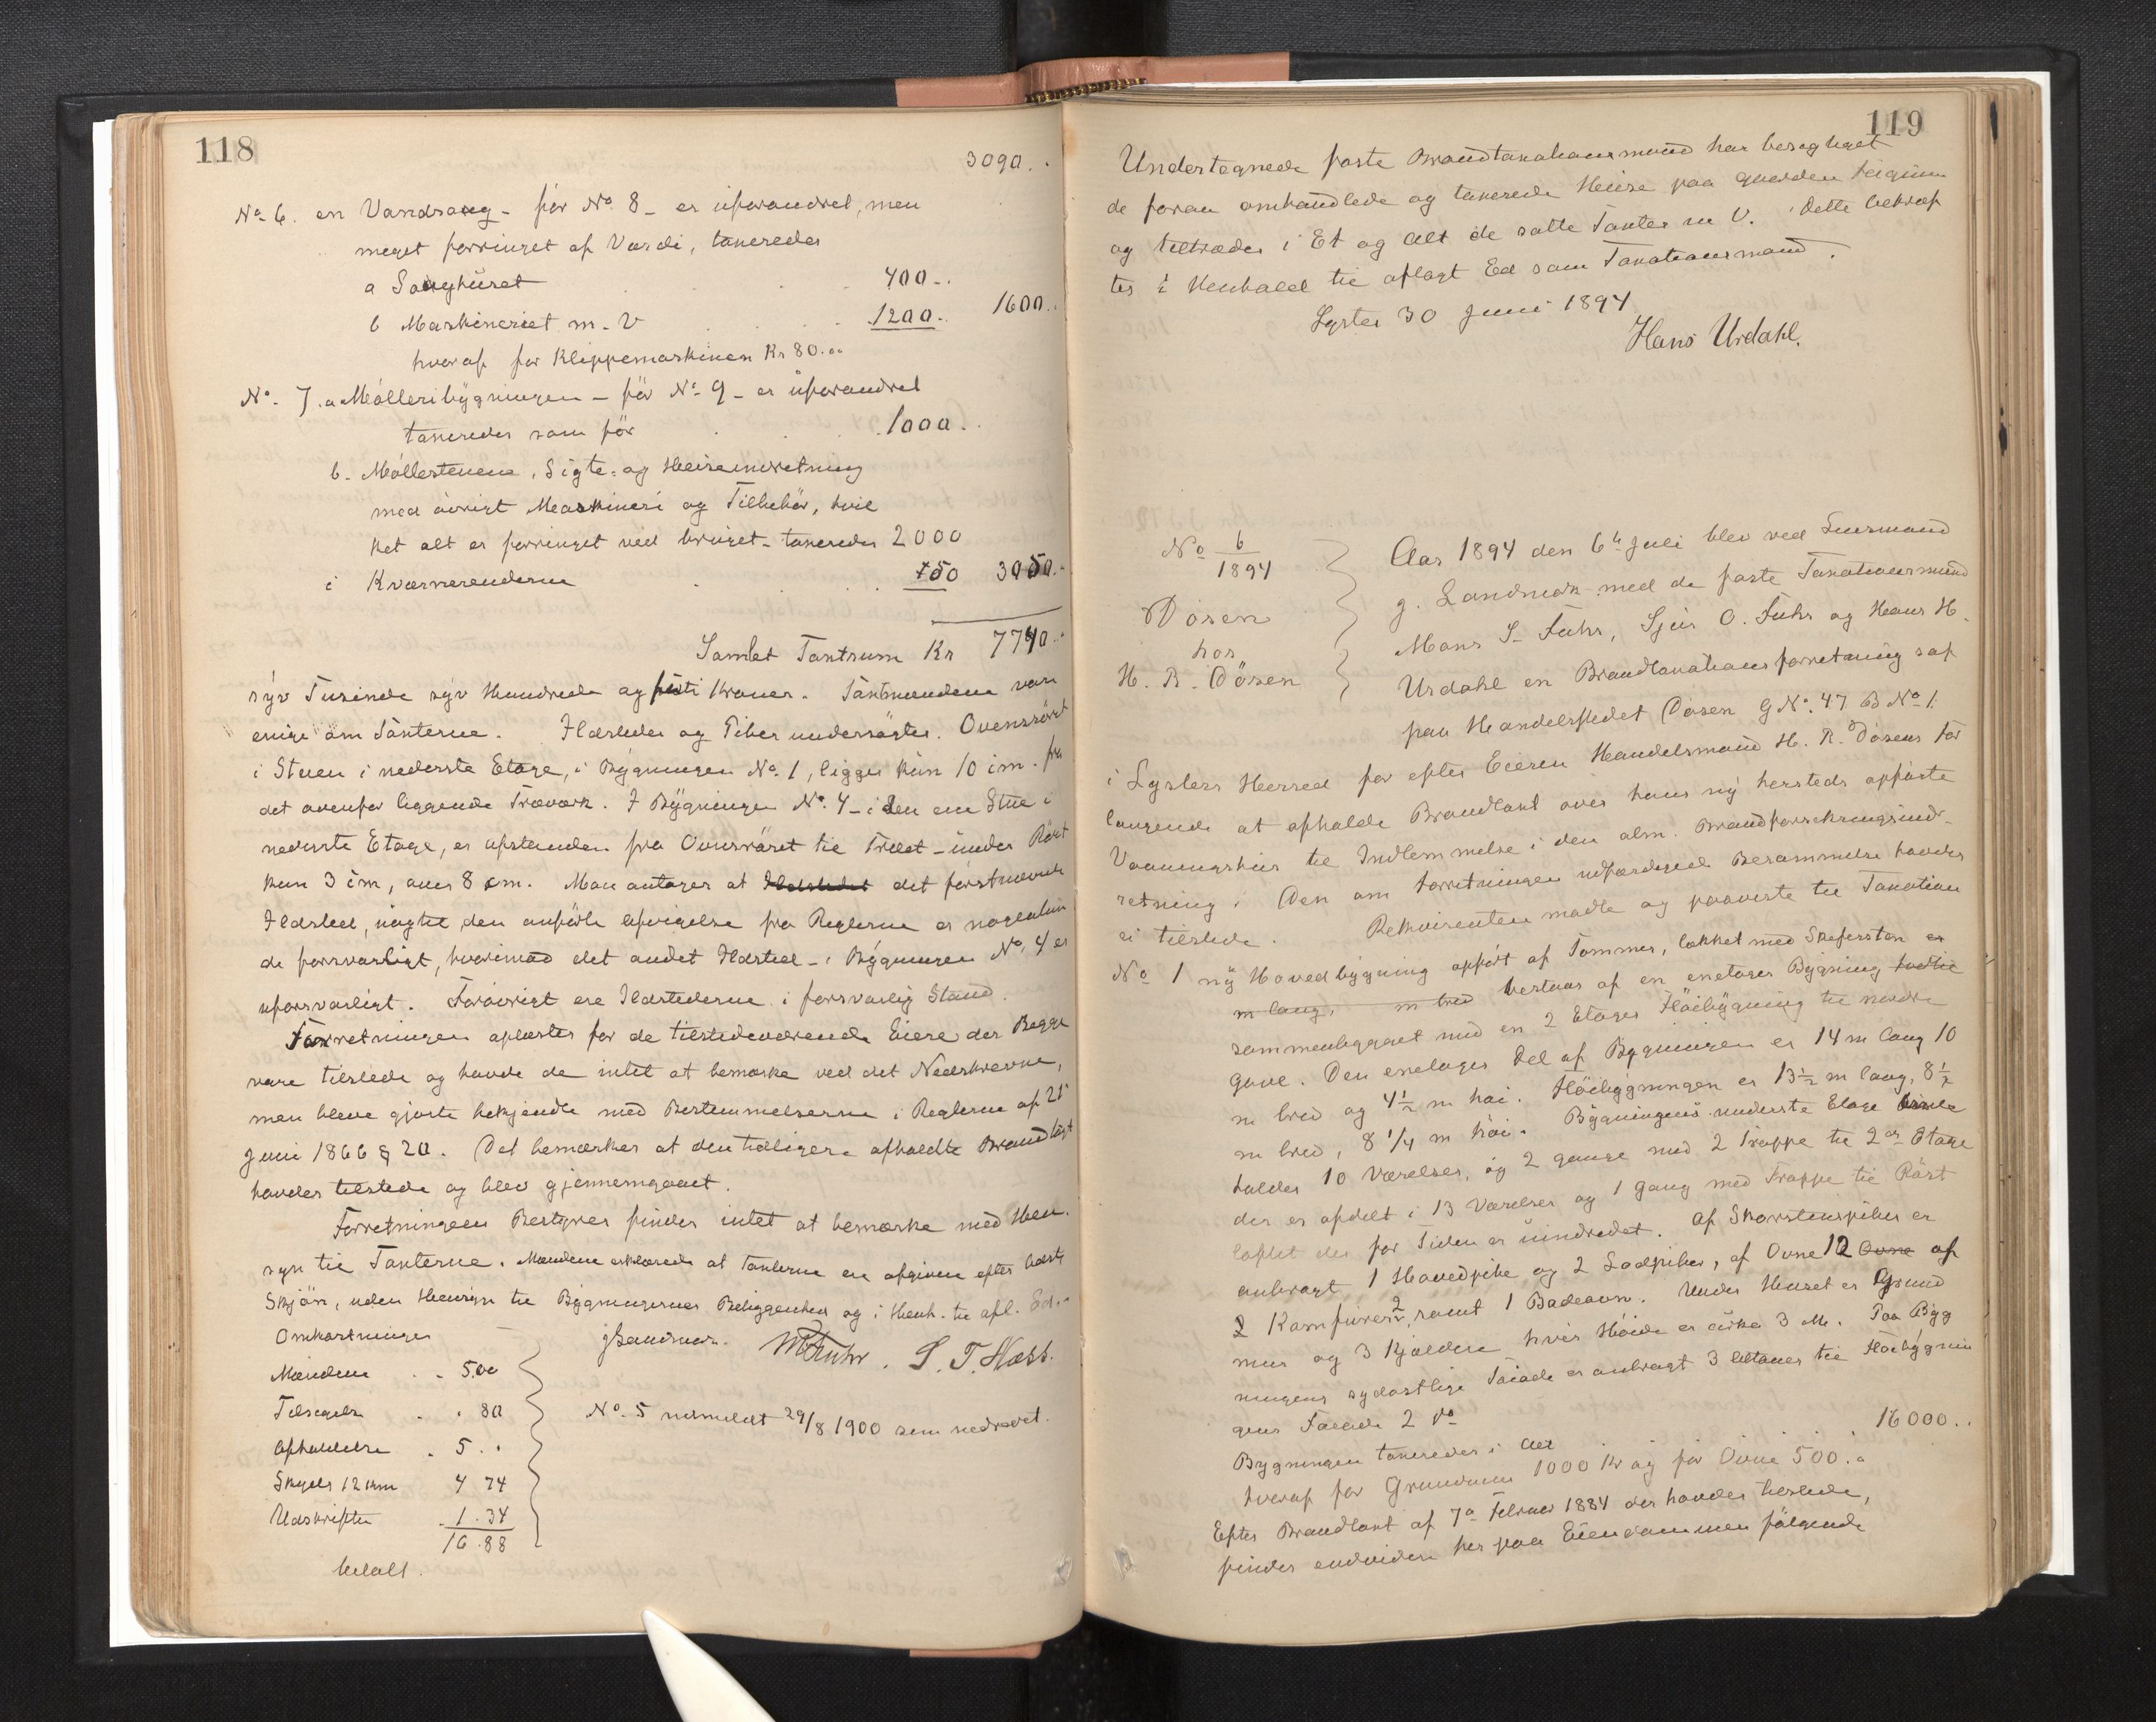 118
3090..
No 6. en Vandsaug - før No 8 - er uforandret, men
meget forringet af Værdi, taxeredes
a Saughuset 400..
b Maskineriet m. V 1200.. 1600..
hvoraf for Klippemaskinen Kr 80.00
No. 7. a Mølleribygningen - før No 9 - er uforandret
taxeredes som før 1000.
b. Møllestenene, Sigte- og Heiseindretning
med øvrigt Maskineri og Tilbehør, hvil
ket alt er forringet ved bruget - taxeredes 2000
i Kværnerenderne 50 3050..
Samlet Taxtsum Kr 7740..
syv Tusinde syv Hundrede og firti Kroner. Taxtmændene vare
enige om Taxterne. Ildsteder og Piber undersøgtes. Ovensrøret
i Stuen i nederste Etage, i Bygningen No. 1, ligger kun 10 cm. fra
det ovenfor liggende Træværk. I Bygningen No. 4 - i den ene Stue i
nederste Etage, er afstanden fra Ovnsrøret til Træet - under Røret
kun 3 cm, over 8 cm. Man antager at Ildstedet det førstnævnte
Ildsted, uagtet den anførte afvigelse fra Reglerne er nogenlun
de forsvarligt, hvorimod det andet Ildsted - i Bygningen No. 4 er
uforsvarligt. Forøvrigt ere Ildstederne i forsvarlig Stand.
Forretningen oplæstes for de tilstedeværende Eiere der Begge
vare tilstede og havde de intet at bemærke ved det Nedskrevne,
men bleve gjorte bekjendte med Bestemmelserne i Reglerne af 21
Juni 1866 § 20. Det bemærkes at den tidligere afholdte Brandtaxt
havdes tilstede og blev gjennemgaaet.
Forretningens Bestyrer finder intet at bemærke med Hen-
syn til Taxterne. Mændene erklærede at taxterne ere afgivne efter bedste
Skjøn, uden Hensyn til Bygningernes Beliggenhed og i Henh. til afl. Ed.-
Omkostninger
JLandmark. MSFuhr. S. T. Hæst.
Mændene . . 5.00
Tilsigelse . . 80
Afholdelse . 5 . .
Skyds 12 km 4 74
Udskriften 1. 34
16.88
betalt.
No. 5 udmeldt 29/8 1900 som nedrevet.
119
Undertegnede faste Brandtaxationsmand har besigtiget
de foran omhandlede og taxerede Huse paa Gaarden
og tiltræder i Et og Alt de satte Taxter m V. Dette bekræf
tes i Henhold til aflagt Ed som Taxationsmand.
Lyster 30 Juni 1894
Hans Urdahl.
No 6/1894
Døsen
hos
H. R. Døsen
Aar 1894 den 6te Juli blev ved Lensmand
J. Landmark med de faste Taxationsmænd
Mons S. Fuhr, Sjur O. Fuhr og Hans H.
Urdahl en Brandtaxationsforretning
paa Handelstedet Døsen G No. 47 B No 1.
i Lysters Herred for efter Eieren Handelsmand H. R. Døsens for
langende at afholde Brandtaxt over hans ny hersteds opførte
Vaaningshus til Indlemmelse i den alm. Brandforsikringsind-
retning. Den om forretningen udfærdigede Berammelse havdes
ei tilstede. Rekvirenten mødte og paaviste til Taxation
No 1 ny Hovedbygning opført af Tømmer, takket med Skifersten er
m lang, m bred bestaar af en enetages Bygning
sammenbygget med en 2 Etages Høibygning til nordre
Gavl. Den enetages Del af Bygningen er 14 m lang 10
m bred og 4 1/2 m høi. Høibygningen er 13 1/2 m lang, 8 1/2
m bred, 8 1/4 m høi. Bygningens underste Etage
holder 10 Værelser, og 2 gange med 2 Trappe til 2den Etage
der er afdelt i 13 Værelser og 1 Gang med Trappe til Røst
loftet der for Tiden er uindredet. Af Skorstenspiber er
anbragt 1 Hovedpibe og 2 Sodpiber, af Ovne 12 Ovne af
2 Komfurer 2, samt 1 Badeovn. Under Huset er Grund
mur og 3 Kjældere hvis Høide er cirka 3 M. Paa Byg
ningens sydøstlige Facade er anbragt 3 Altaner til Høibygnin
gens Facade 2 do
Bygningen taxeredes i Alt 16000..
hvoraf for Grundmur 1000 Kr og for Ovne 500.
Efter Brandtaxt af 7de Februar 1884 der havdes tilstede,
findes endvidere her paa Eiendommen følgende